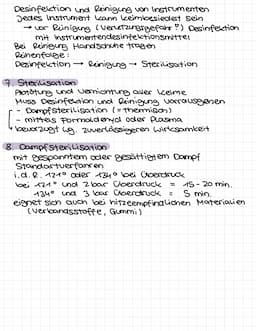 Desinfektion und Reinigung von Instrumenten
Jedes Instrument kann keimbesiedelt sein
→ vor Reinigung (Verletzungsgefahr!) Desinfektion
mit Instrumentendesinfektionsmittel
Bei Reinigung Handschuhe tragen
Reihenfolge:
Desinfektion → Reinigung → Sterilisation
7. Sterilisation
Abtötung und Vernichtung aller Keime
Muss Desinfektion und Reinigung vorausgehen
- Dampfsterilisation (= thermisch)
- mittels Formaldehyd oder Plasma
bevorzugt wg. zuverlässigeren Wirksamkeit
8. Dampfsterilisation
mit gespanntem oder gesättigtem Dampf
Standardverfahren
i.d.R. 121° oder 134° bei Überdruck
bei 121° und 2 bar Überdruck = 15-20 min.
134° und 3 bar Überdruck = 5 min.
eignet sich auch bei hitzeempfindlichen Materialien
(Verbandsstoffe, Gummi)